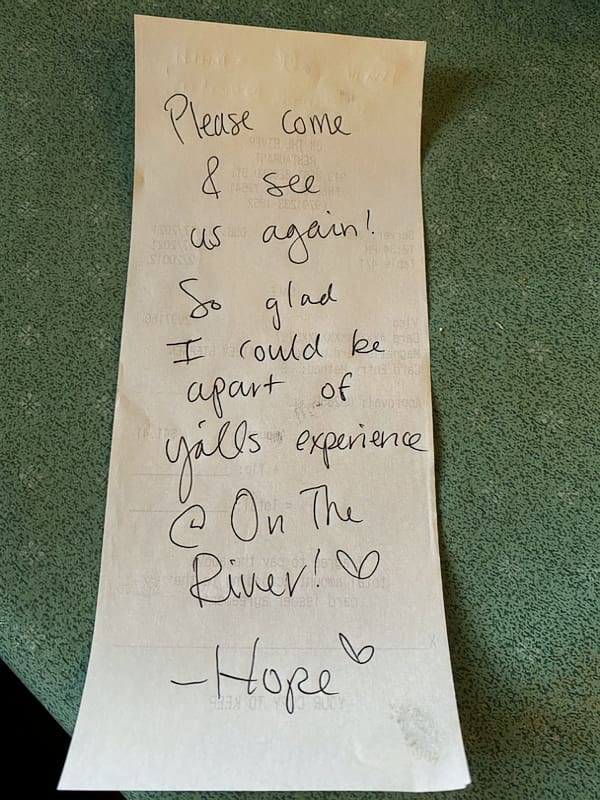 Please come
& see
us again!
So glad
I could be
apart of
y'alls experience
@ On The
River! ♡
-Hope ♡